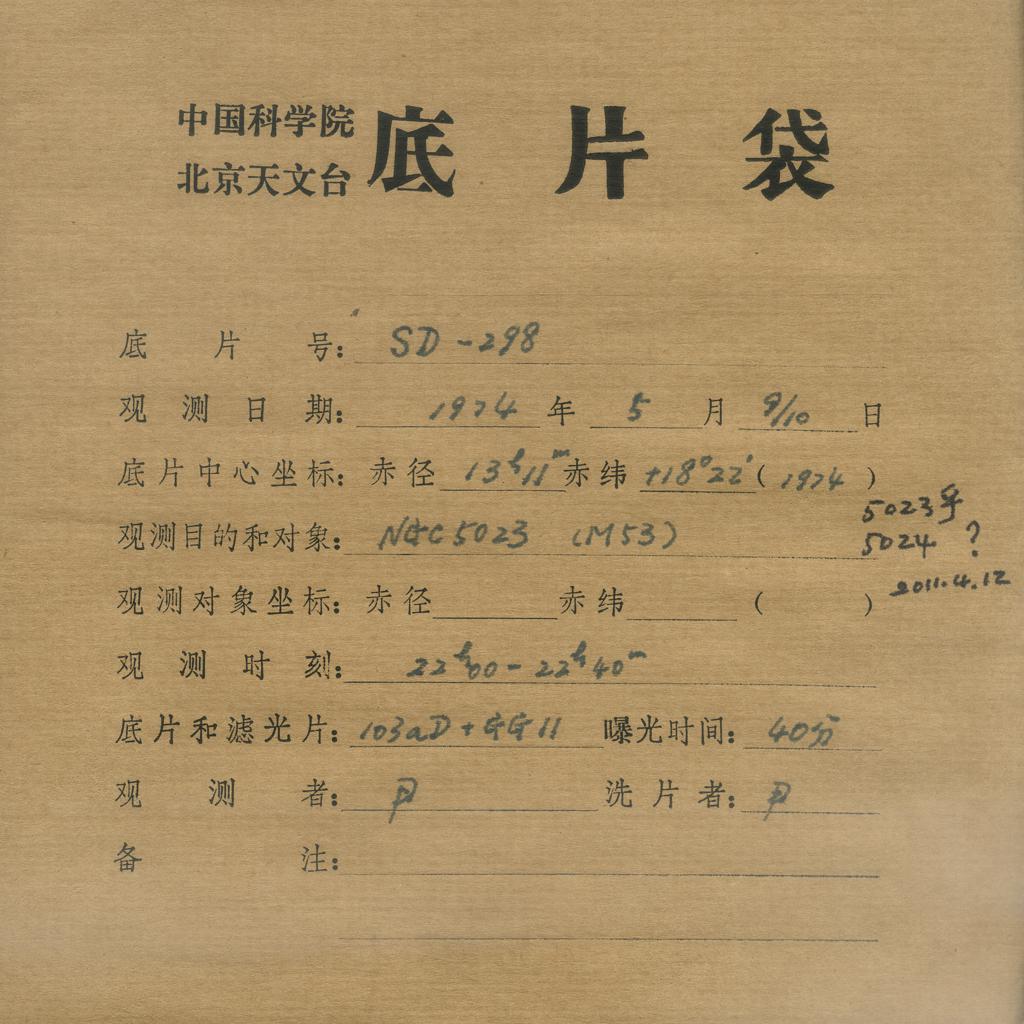 中国科学院
北京天文台
底片袋
底片号：SD-298
观测日期：1974年5月9/10日
底片中心坐标：赤径13ʰ11ᵐ赤纬+18°22′(1974)
观测目的和对象：NGC5023 (M53)
5023乎
5024?
2011.4.12
观测对象坐标：赤径 赤纬 ( )
观测时刻：22ʰ00-22ʰ40ᵐ
底片和滤光片：103aD+GG11 曝光时间：40分
观测者：尹 洗片者：尹
备注：